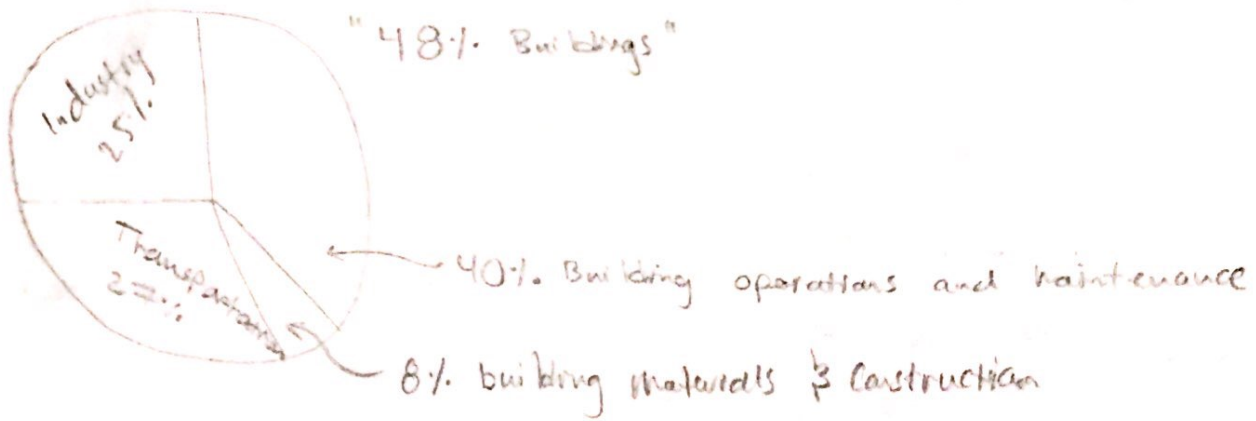 "48% Buildings"
Industry
25%
Transportation
27%
40% Building operations and maintenance
8% building materials & Construction